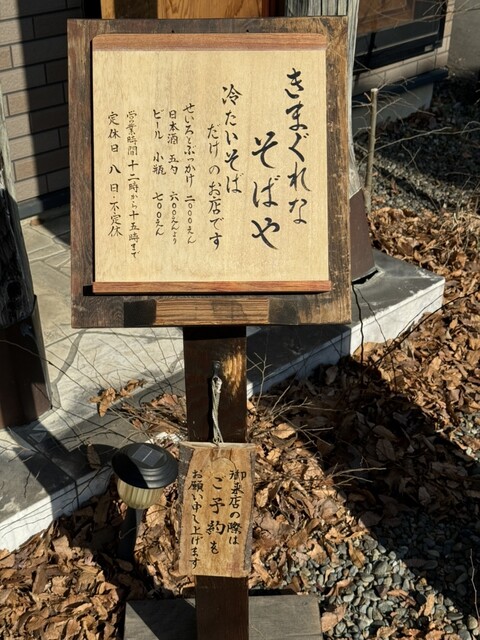 きまぐれな
そばや
冷たいそば
だけのお店です
せいろとぶっかけ 二〇〇〇えん
日本酒 五勺 六〇〇えんより
ビール 小瓶 七〇〇えん
営業時間 十二時から十五時まで
定休日 八日・不定休
御来店の際は
ご予約を
お願い申し上げます